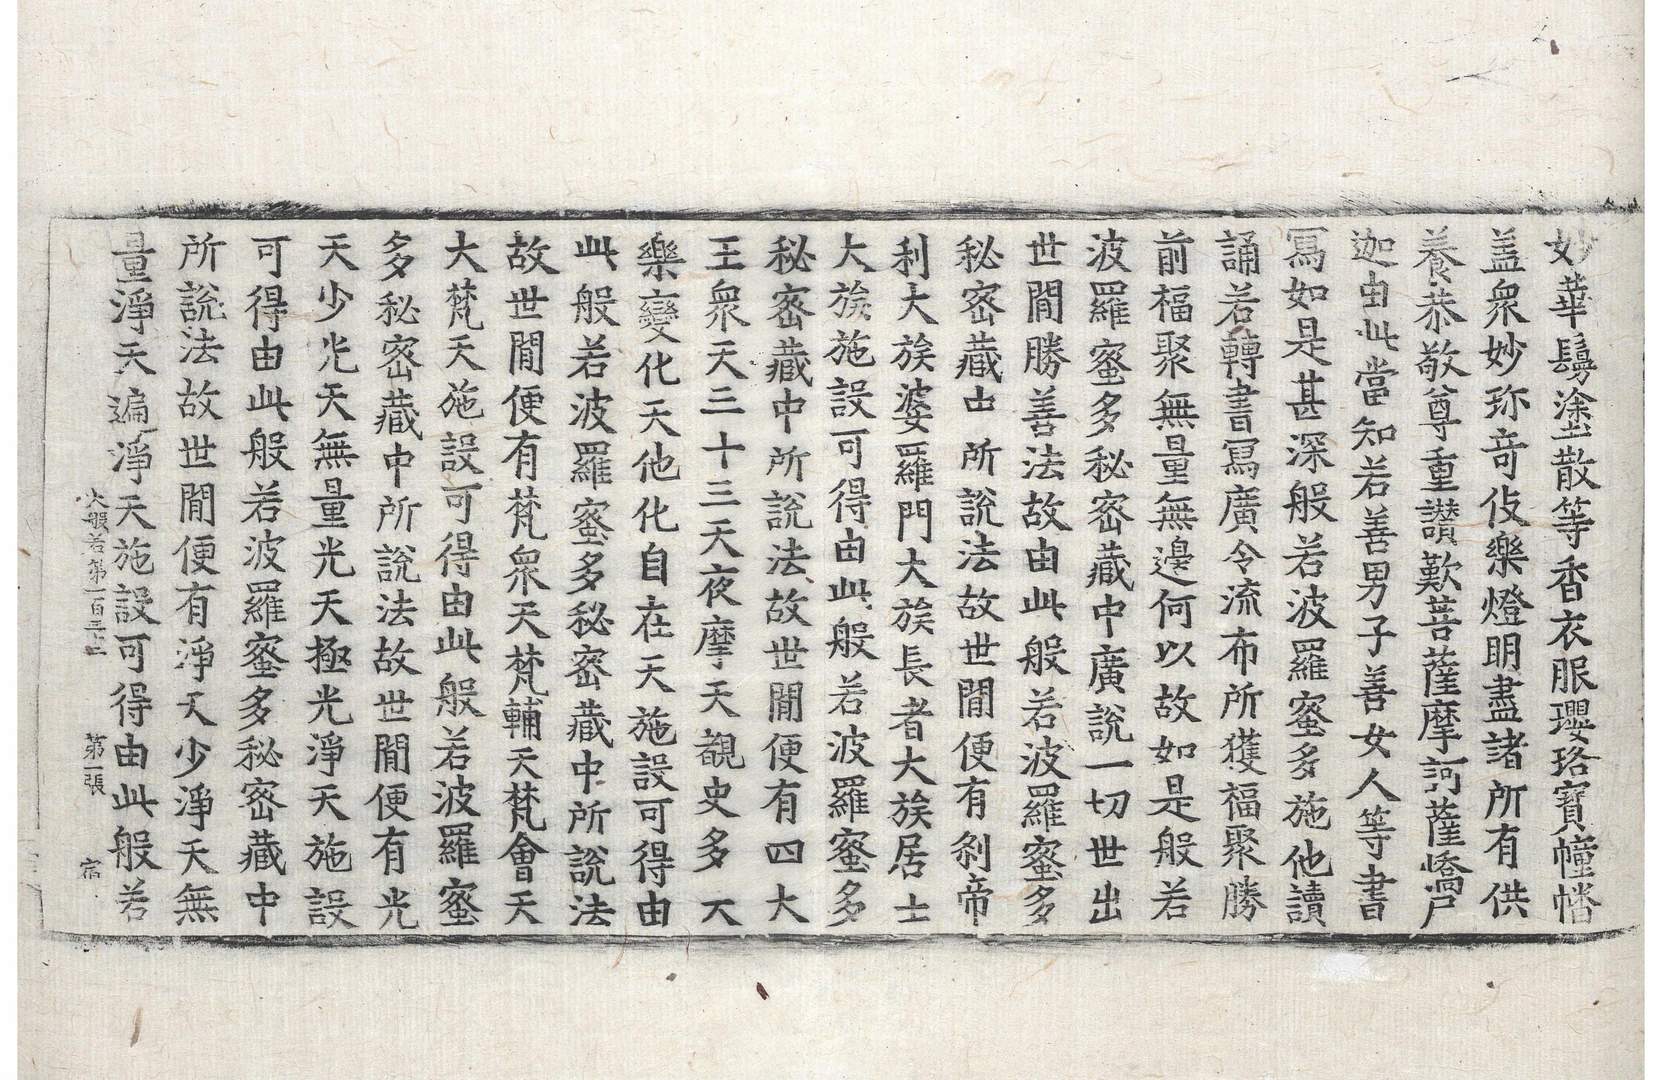 妙華鬘塗散等香衣服瓔珞寶幢幡
盖衆妙珎竒伎樂燈明盡諸所有供
養恭敬尊重讃歎菩薩摩訶薩憍尸
迦由此當知若善男子善女人等書
寫如是甚深般若波羅蜜多施他讀
誦若轉書寫廣令流布所獲福聚勝
前福聚無量無邊何以故如是般若
波羅蜜多秘密藏中廣說一切世出
世間勝善法故由此般若波羅蜜多
秘密藏中所說法故世間便有刹帝
利大族婆羅門大族長者大族居士
大族施設可得由此般若波羅蜜多
秘密藏中所說法故世間便有四大
王衆天三十三天夜摩天覩史多天
樂變化天他化自在天施設可得由
此般若波羅蜜多秘密藏中所說法
故世間便有梵衆天梵輔天梵會天
大梵天施設可得由此般若波羅蜜
多秘密藏中所說法故世間便有光
天少光天無量光天極光淨天施設
可得由此般若波羅蜜多秘密藏中
所說法故世間便有淨天少淨天無
量淨天遍淨天施設可得由此般若
大般若第一百三十 第二張 宿